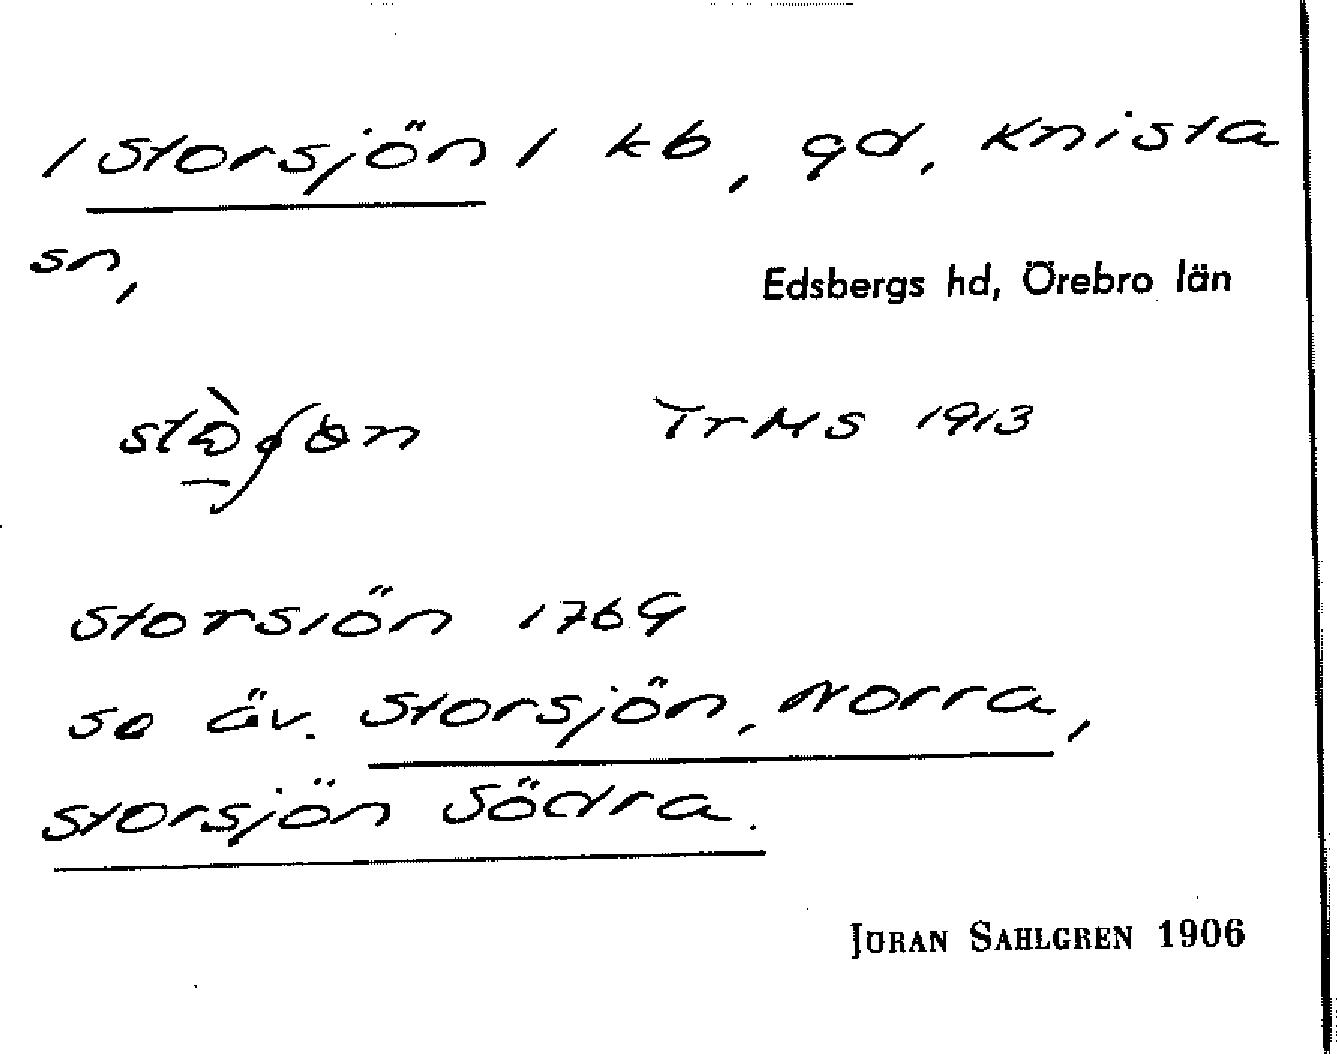 /Storsjön/ kb, gd, Knista
sn,
Edsbergs hd, Örebro län
TrMS 1913
Storsiön 1769
se äv. Storsjön, Norra,
Storsjön Södra.
JÖRAN SAHLGREN 1906